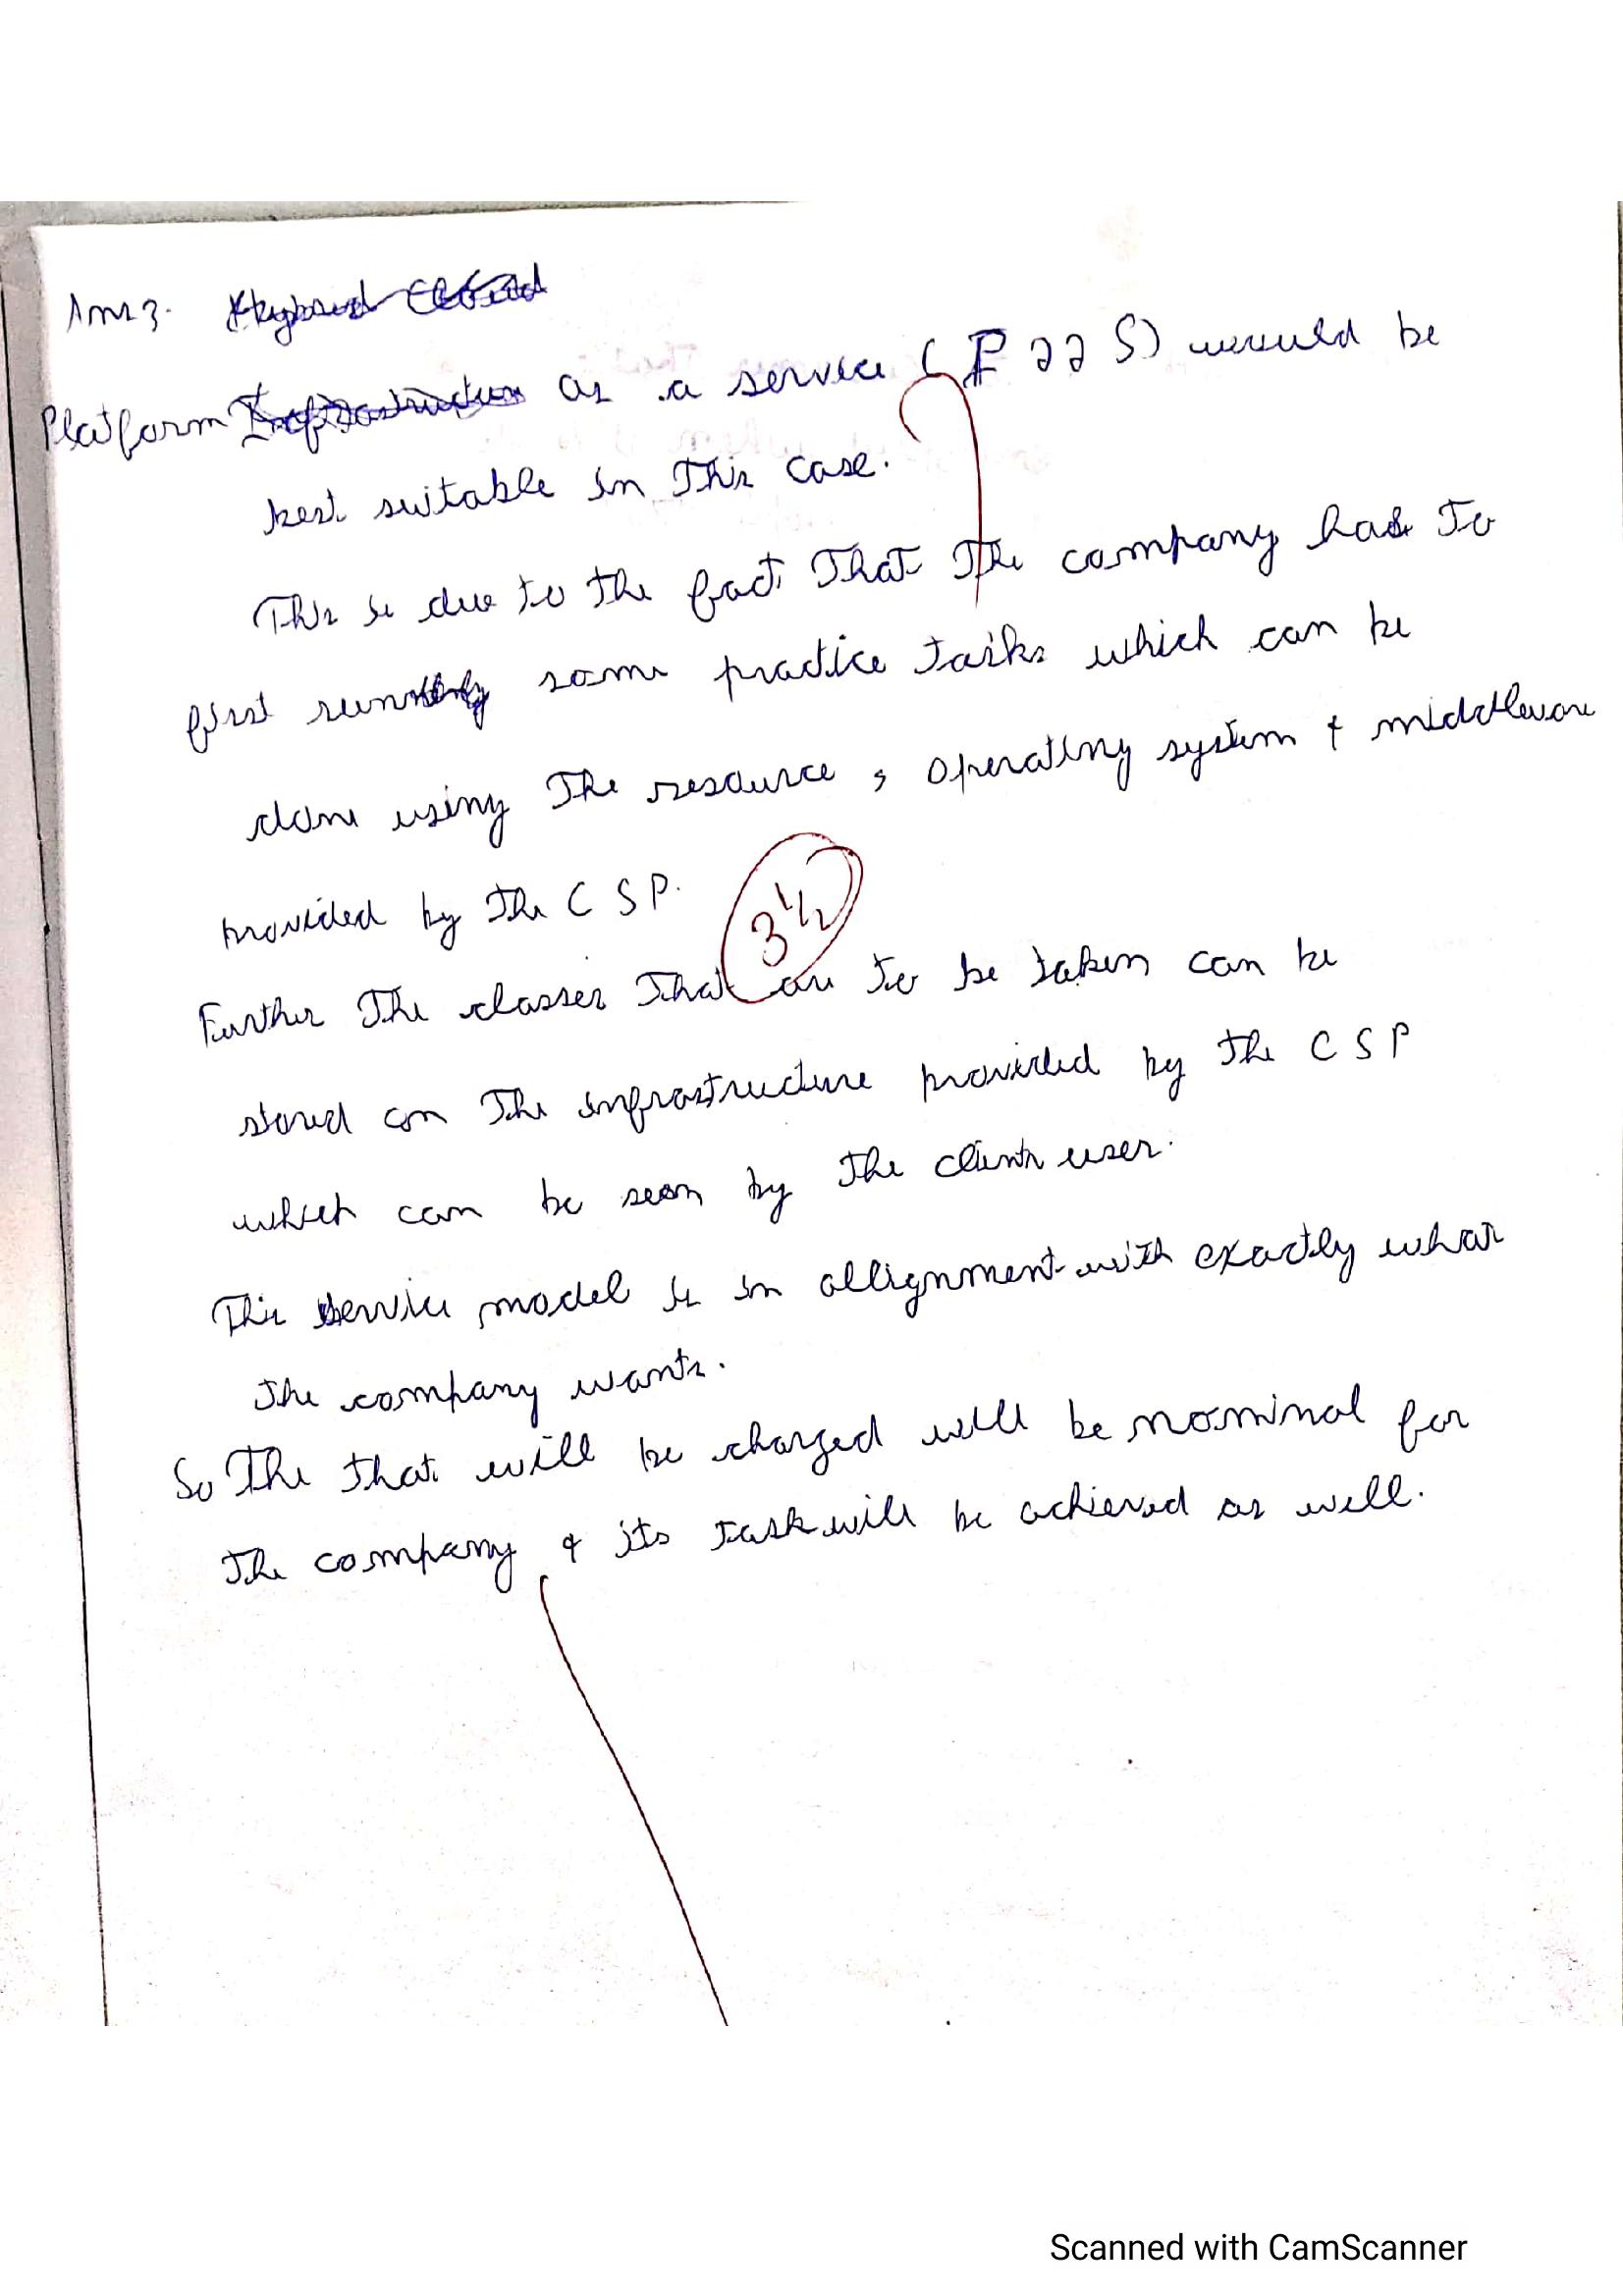 Ans 3. Hybrid Cloud
Platform Infrastructure as a service (PaaS) would be
best suitable in this case.
This is due to the fact that the company has to
first run some practice tasks which can be
done using the resource, operating system & middleware
provided by the CSP.
3 1/2
Further the classes that are to be taken can be
stored on the infrastructure provided by the CSP
which can be seen by the clients user.
This service model is in allignment with exactly what
the company wants.
So the that will be charged will be nominal for
the company & its task will be achieved as well.
Scanned with CamScanner